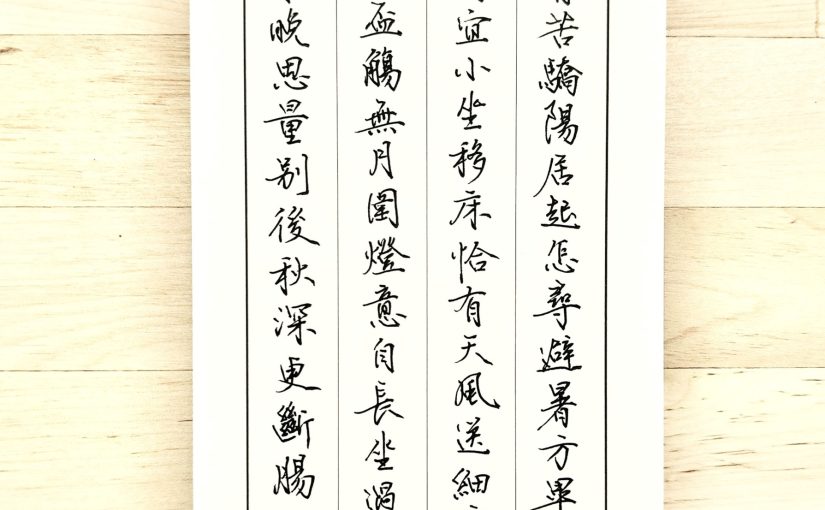 苦驕陽居起怎尋避暑方畢
宜小坐移床恰有天風送細
盃觴無月圍燈意自長坐
晚思量別後秋深更斷腸